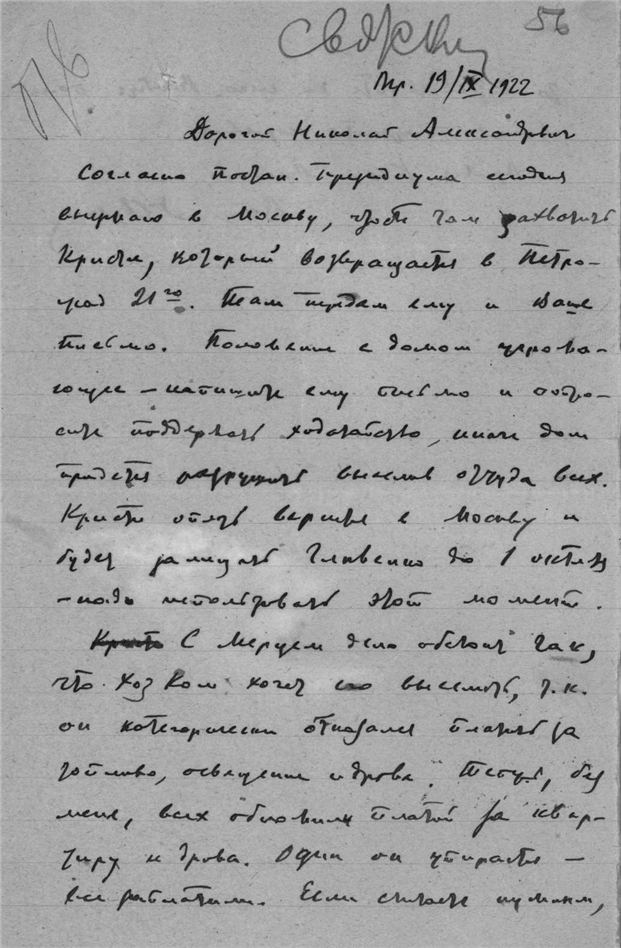 56
Птр. 19/IX 1922
Дорогой Николай Александрович
Согласно постан. Президиума сегодня
выезжаю в Москву, чтоб там захватить
Кристи, который возвращается в Петро-
град 21го. Там передам ему и Ваше
письмо. Положение с домом угрожа-
ющее – напишите ему письмо и попро-
сите поддержать ходатайство, иначе дом
придется разрушить выселив оттуда всех.
Кристи опять вернется в Москву и
будет замещать Гливенко до 1 октября
– надо использовать этот момент.
С Мерцем дело обстоит так,
что ХозКом хочет его выселить, т.к.
он категорически отказался платить за
топливо, освещение и дрова. Теперь, без
меня, всех обложили платой за квар-
тиру и дрова. Один он упирается –
все заплатили. Если считаете нужным,